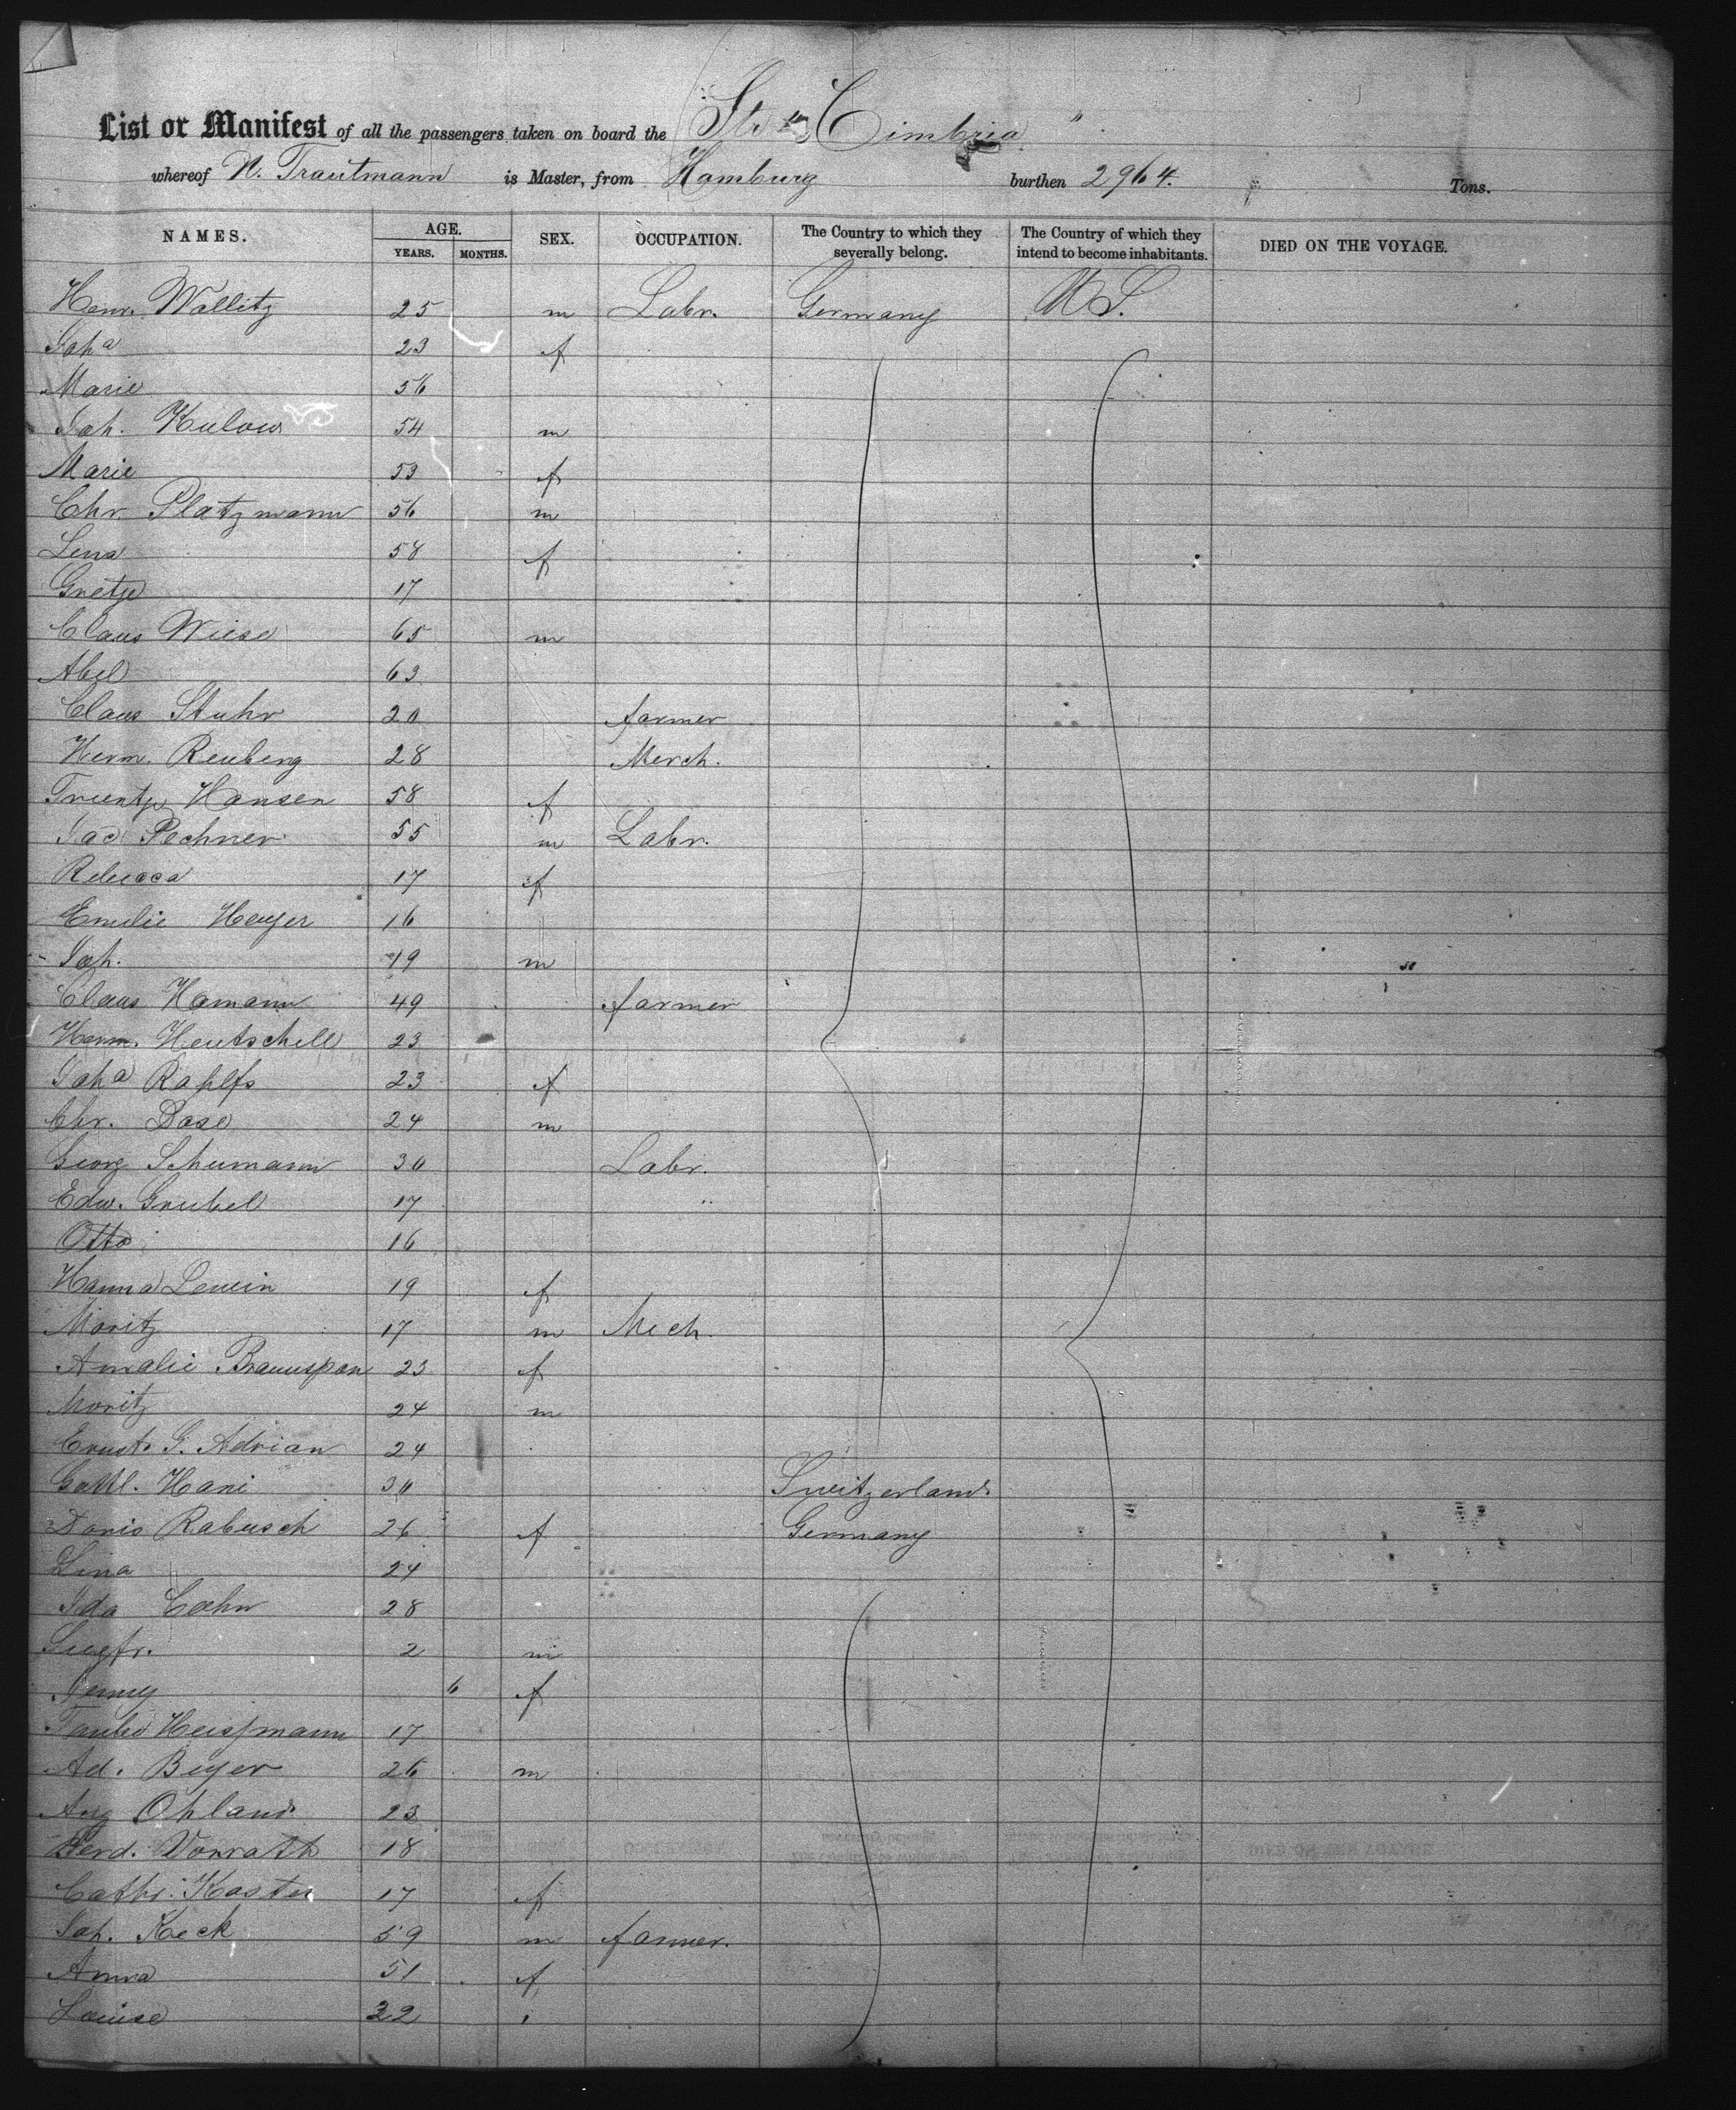 List or Manifest of all the passengers taken on board the Str "Cimbria"
whereof N. Trautmann is Master, from Hamburg burthen 2964. Tons.
NAMES. AGE. SEX. OCCUPATION. The Country to which they severally belong. The Country of which they intend to become inhabitants. DIED ON THE VOYAGE.
YEARS. MONTHS.
Henr. Wallitz 25 m Labr. Germany U S.
Joha 23 f
Marie 56
Joh. Kulow 54 m
Marie 53 f
Chr. Platzmann 56 m
Lena 58 f
Gretje 17
Claus Wiese 65 m
Abel 63
Claus Stuhr 20 farmer
Herm. Reuberg 28 Merch.
Trientje Hansen 58 f
Jac Pechner 55 m Labr.
Rebecca 17 f
Emilie Heyer 16
Joh. 19 m
Claus Hamann 49 farmer
Herm. Hentschell 23
Joha Rahlfs 23 f
Chr. Dase 24 m
Georg Schumann 30 Labr.
Edw. Grubel 17 "
Otto 16
Hanna Lewin 19 f
Moritz 17 m Mech.
Amalie Braunspan 23 f
Moritz 24 m
Ernst G. Adrian 24
Gottl. Hani 30 Switzerland
Doris Rabusch 26 f Germany
Lina 24
Ida Cohn 28
Siegfr. 2 m
Jenny 6 f
Taube Heissmann 17
Ad. Beyer 26 m
Aug Ohland 23
Ferd. Vonrath 18
Cathr. Kaster 17 f
Joh. Keck 59 m farmer.
Anna 51 f
Louise 22